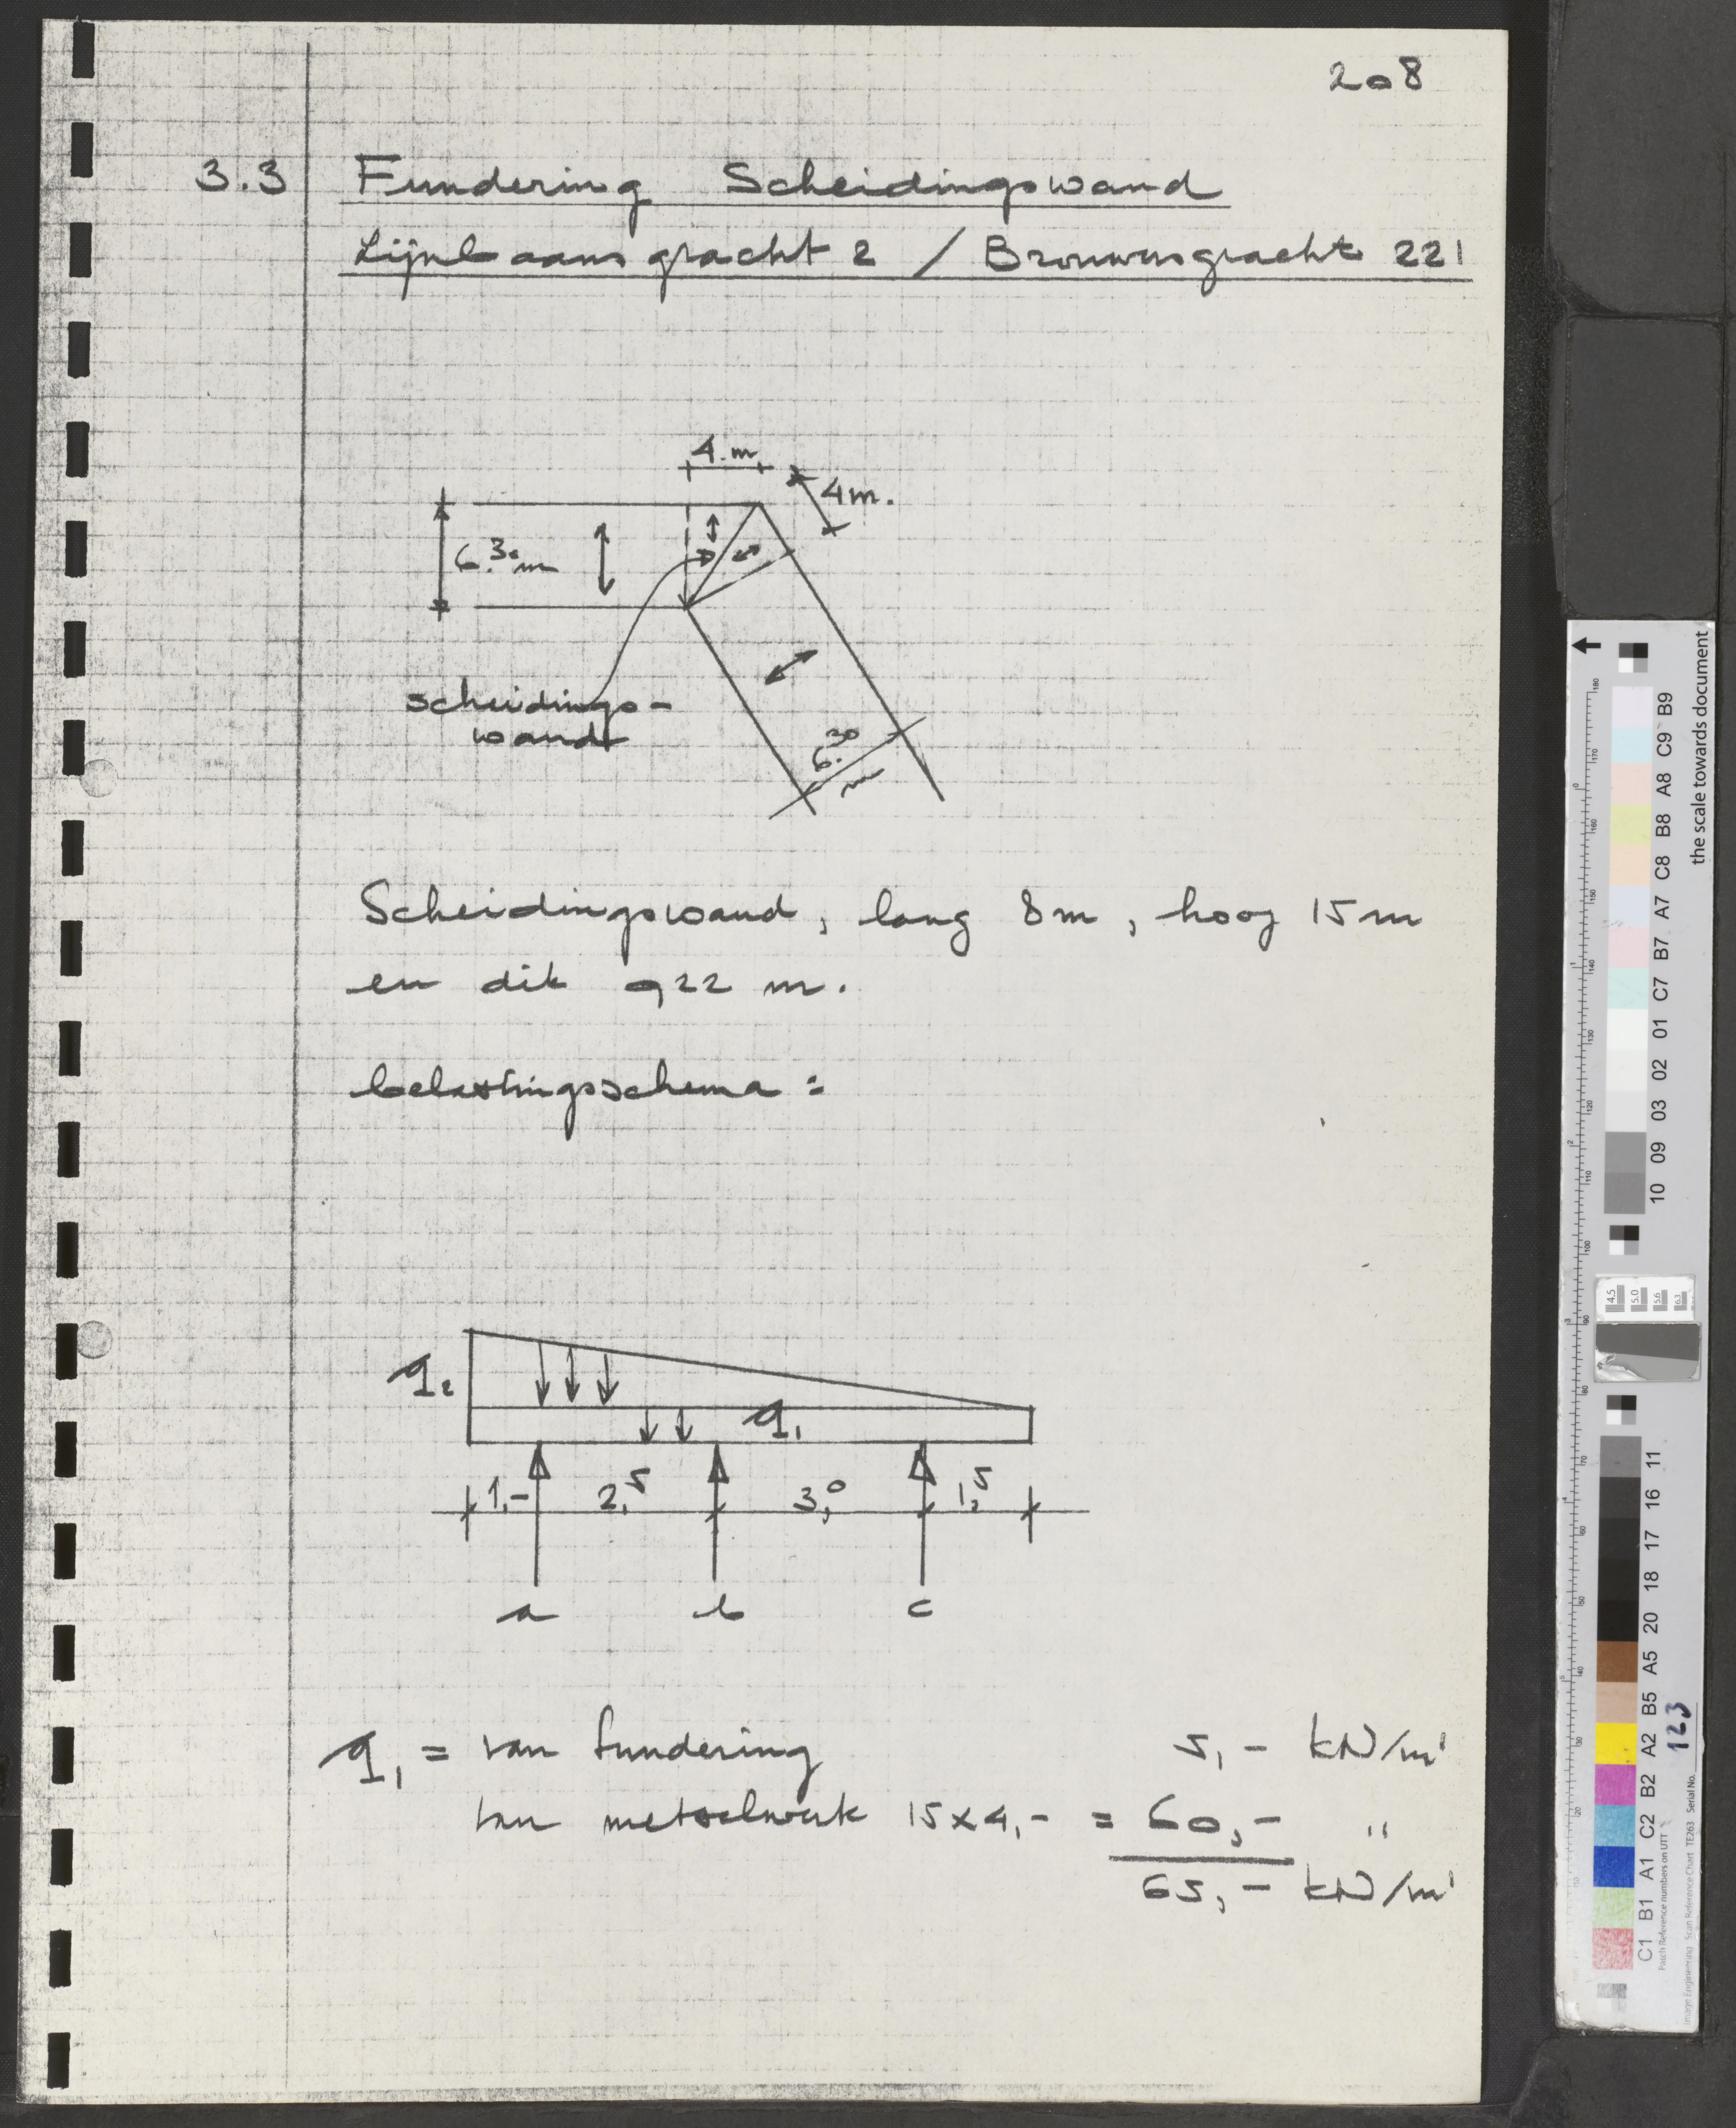 208
3.3 Fundering Scheidingswand
Lijnbaansgracht 2 / Brouwersgracht 221
4 m
4 m.
6.30 m
scheidings-
wand
6.30 m
Scheidingswand, lang 8m, hoog 15m
en dik 0,22 m.
belastingsschema :
q2
q1
1,- 2,5 3,0 1,5
a b c
q1 = van fundering 5,- kN/m'
van metselwerk 15x4,- = 60,- "
65,- kN/m'
the scale towards document
C1 B1 A1 C2 B2 A2 B5 A5 20 18 17 16 11
10 09 03 02 01 C7 B7 A7 C8 B8 A8 C9 B9
4.5 5.0 5.6 6.3
Patch Reference numbers on UTT
Image Engineering Scan Reference Chart TE263 Serial No. 123